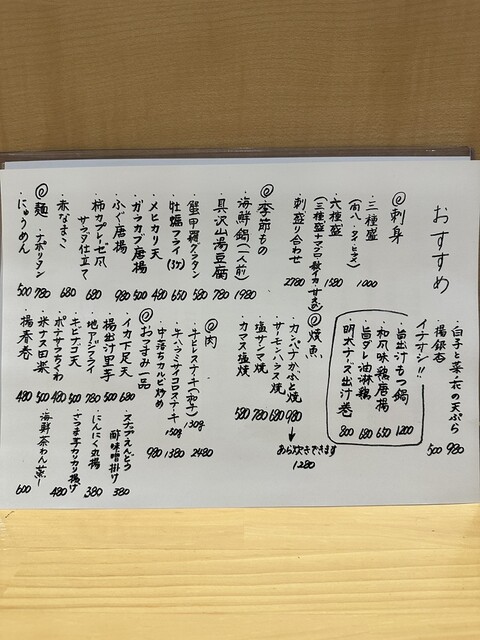 おすすめ
◎刺身
・三種盛 1000
(カンパ・タイ・ヒラマサ)
・六種盛 1580
(三種盛+マグロ・イカ・サーモン)
刺盛り合わせ 2780
◎季節もの
・海鮮鍋(一人前) 1980
・具沢山湯豆腐 780
・蟹甲羅グラタン 580
・牡蠣フライ(3ケ) 650
・メヒカリ天 480
・ガラカブ唐揚 500
・ふぐ唐揚 980
・柿カプレーゼ風
サラダ仕立て 680
・赤なまこ 680
◎麺
・ナポリタン 780
・にゅうめん 500
白子と菜の花の天ぷら 980
・揚銀杏 500
イチオシ!!
・旨出汁もつ鍋 1200
・和風味鶏唐揚 650
・旨ダレ油淋鶏 680
・明太チーズ出汁巻 800
◎焼魚
・カンパチかぶと焼 980
↓
あら炊きできます
1280
・サーモンハラス焼 680
・塩サンマ焼 780
・カマス塩焼 580
◎肉
・牛ヒレステーキ(和牛)
130g 2480
・牛ハラミサイコロステーキ
150g 1380
・中落ちカルビ炒め 980
◎おつまみ一品
・イカ下足天 680
・揚出汁里芋 500
・地アジフライ 780
・キビナゴ天 500
・ポテサラちくわ 480
・米ナス田楽 500
・揚春巻 480
・スナップえんどう
酢味噌掛け 380
・にんにく丸揚 380
・さつま芋カリカリ揚げ 480
・海鮮茶わん蒸し 600